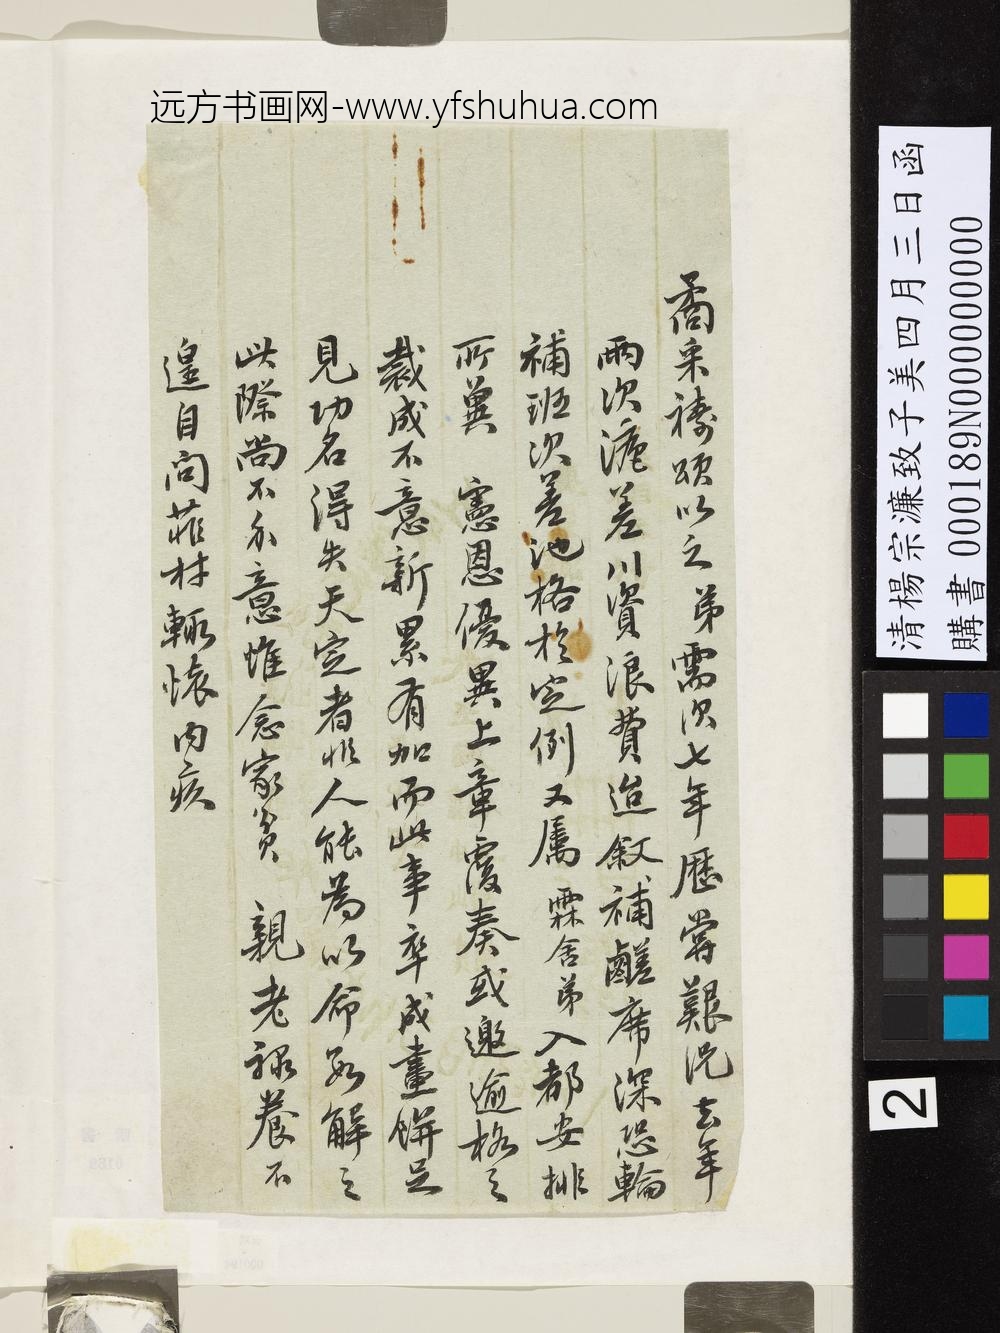 远方书画网-www.yfshuhua.com
矞采禱頌以之弟需次七年歷嘗艱況去年
兩次滬差川資浪費迨敘補鹺席深恐輪
補班次差池格於定例又屬霖舍弟入都安排
所冀 憲恩優異上章覆奏或邀逾格之
裁成不意新累有加而此事卒成畫餅足
見功名得失天定者非人能為以命數解之
此際尚不介意惟念家貧 親老祿養不
遑自問菲材輒懷內疚
清楊宗濂致子美四月三日函
購書 000189N000000000
2